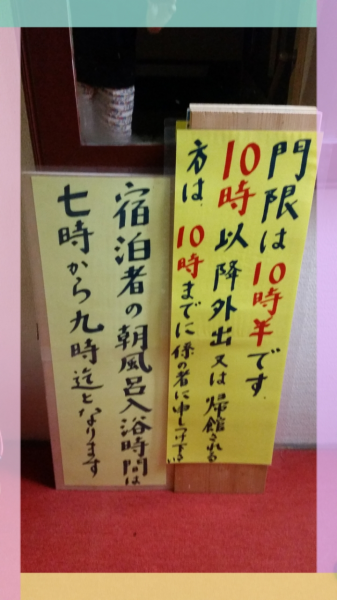 門限は10時半です.
10時以降外出又は帰館される
方は 10時までに係の者に申しつけ下さい
宿泊者の朝風呂入浴時間は
七時から九時迄となります